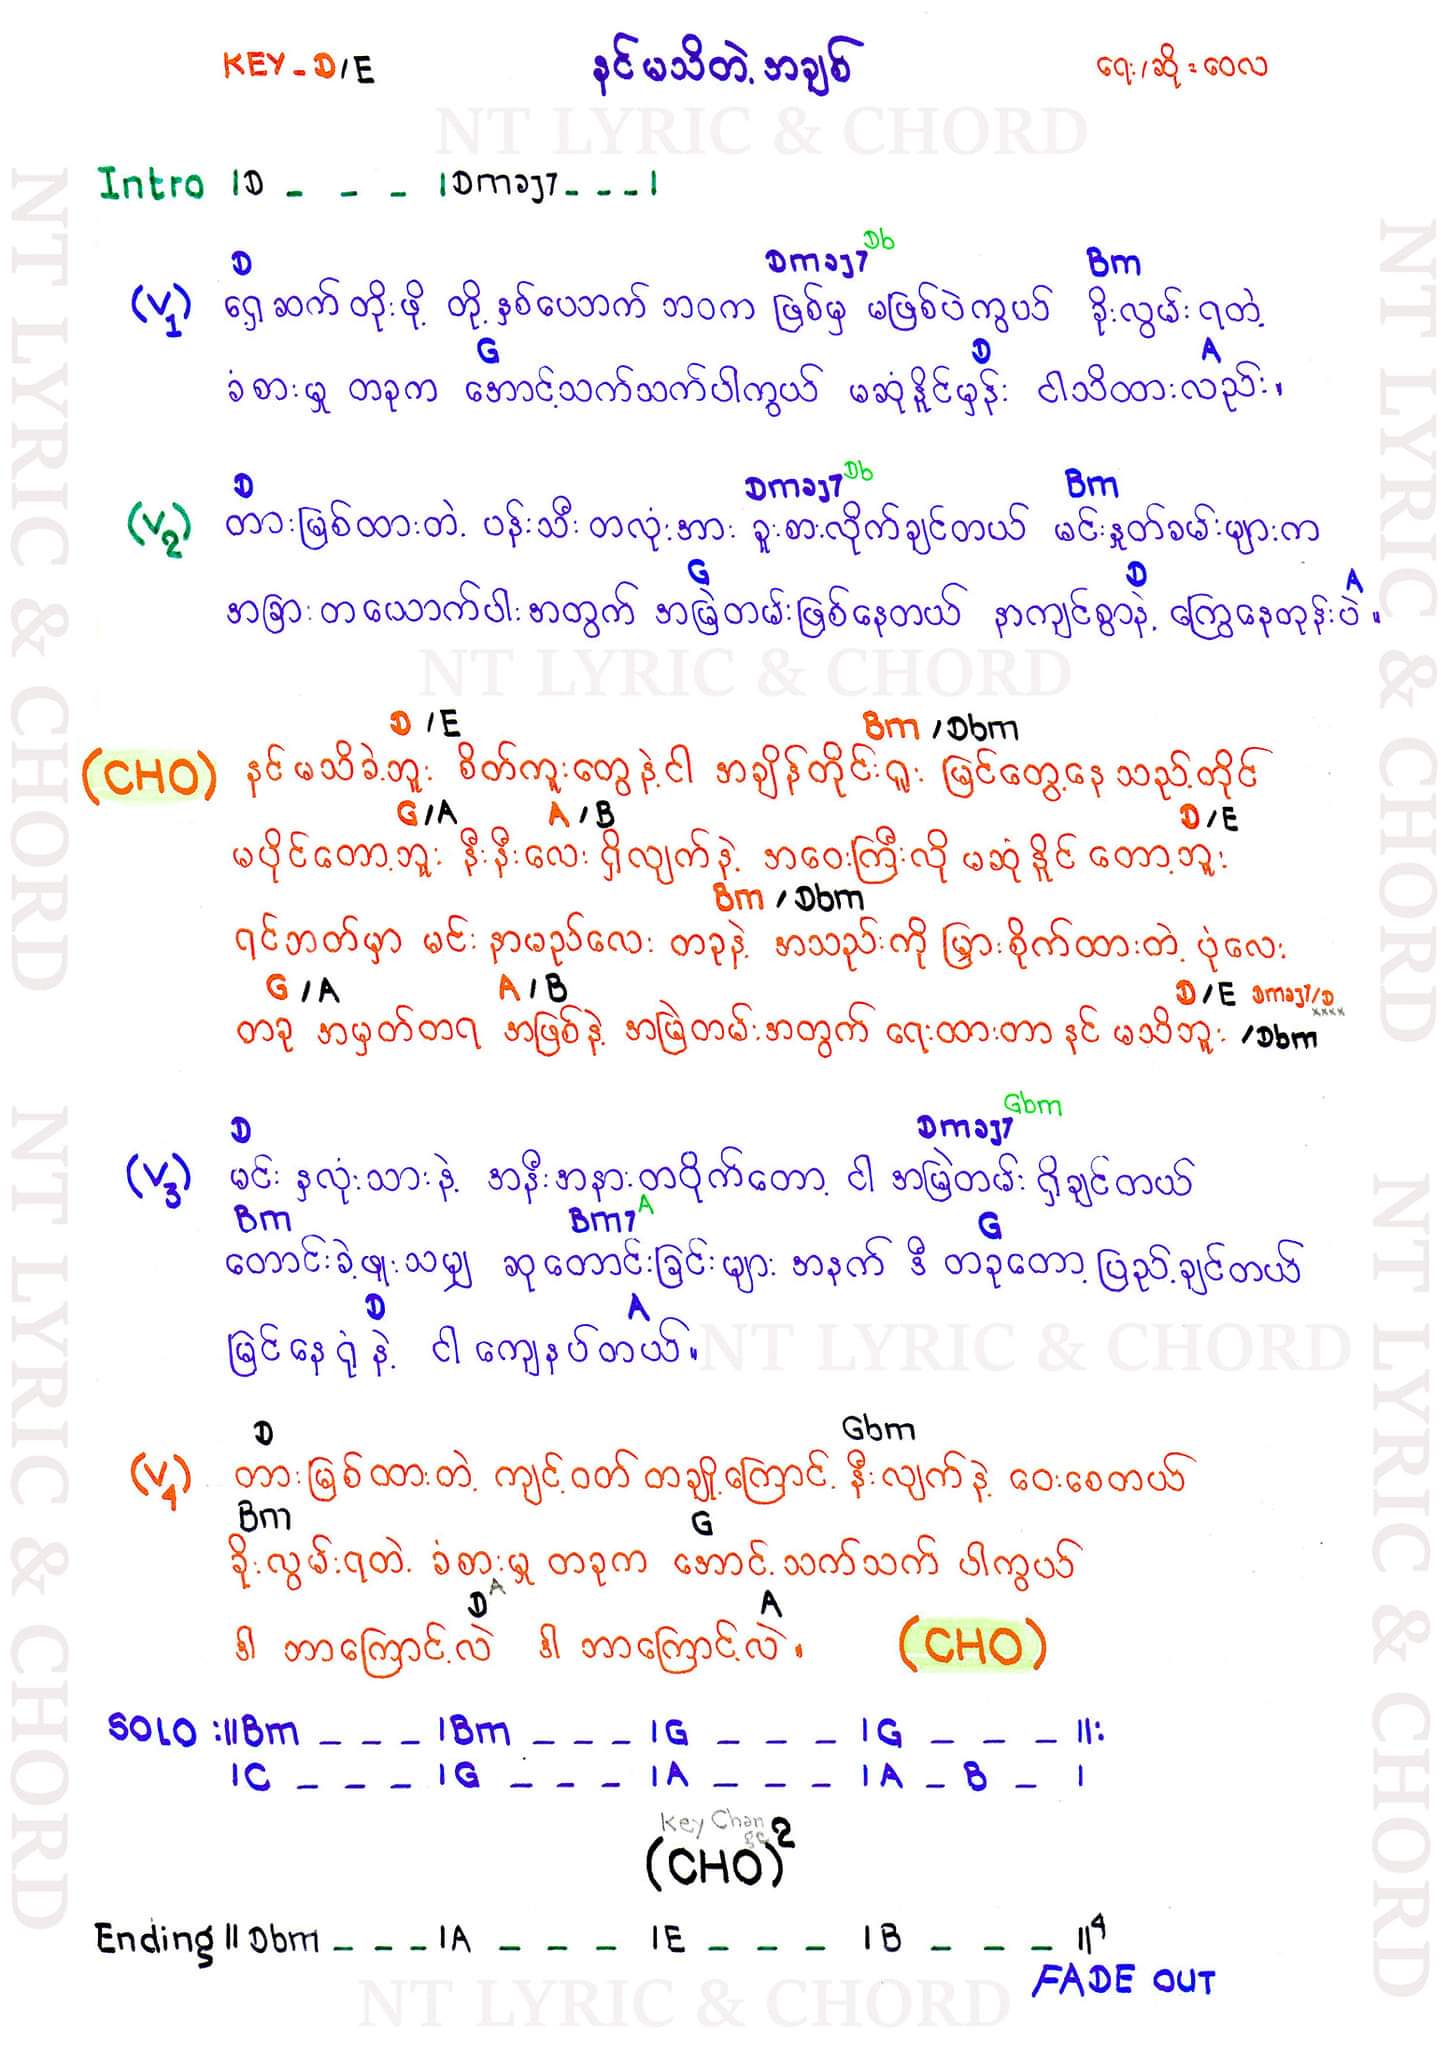 KEY - D/E
နင်မသိတဲ့အချစ်
ရေး/ဆို = ဝေလ
NT LYRIC & CHORD
Intro |D _ _ _ |Dmaj7 _ _ _ |
D Dmaj7 Db Bm
(V1) ရှေ့ဆက်တိုးဖို့ တို့နှစ်ပေဘက် ဘဝက ဖြစ်မှ မဖြစ်ပဲကွယ် ခိုးလွမ်းရတဲ့
G D A
ခံစားမှု တခုက အောင့်သက်သက်ပါကွယ် မဆုံနိူင်မှန်း ငါသိထားလည်း။
D Dmaj7 Db Bm
(V2) တားမြစ်ထားတဲ့ ပန်းသီးတလုံးအား ခူးစားလိုက်ချင်တယ် မင်းနှုတ်ခမ်းများက
G D A
အခြားတယောက်ပါးအတွက် အမြဲတမ်းဖြစ်နေတယ် နာကျင်စွာနဲ့ ကြွေနေတုန်းပဲ။
NT LYRIC & CHORD
D /E Bm /Dbm
(CHO) နင်မသိခဲ့ဘူး စိတ်ကူးတွေနဲ့ငါ အချိန်တိုင်းရူး မြင်တွေ့နေသည့်တိုင်
G /A A /B D /E
မပိုင်တော့ဘူး နီးနီးလေး ရှိလျက်နဲ့ အဝေးကြီးလို မဆုံနိူင်တော့ဘူး
Bm /Dbm
ရင်ဘတ်မှာ မင်းနာမည်လေး တခုနဲ့ အသည်းကို မြှားစိုက်ထားတဲ့ ပုံလေး
G /A A /B D /E Dmaj7/D xxxx
တခု အမှတ်တရ အဖြစ်နဲ့ အမြဲတမ်းအတွက် ရေးထားတာ နင်မသိဘူး /Dbm
D Dmaj7 Gbm
(V3) မင်းနှလုံးသားနဲ့ အနီးအနားတဝိုက်တော့ ငါအမြဲတမ်း ရှိချင်တယ်
Bm Bm7 A G
တောင်းခဲ့ဖူးသမျှ ဆုတောင်းခြင်းများ အနက် ဒီတခုတော့ ပြည့်ချင်တယ်
D A
မြင်နေရုံနဲ့ ငါကျေနပ်တယ်။
NT LYRIC & CHORD
D Gbm
(V4) တားမြစ်ထားတဲ့ ကျင့်ဝတ်တချို့ကြောင့် နီးလျက်နဲ့ ဝေးစေတယ်
Bm G
ခိုးလွမ်းရတဲ့ ခံစားမှု တခုက အောင့်သက်သက် ပါကွယ်
D A A
ဒါ ဘာကြောင့်လဲ ဒါ ဘာကြောင့်လဲ။ (CHO)
SOLO :||Bm _ _ _ |Bm _ _ _ |G _ _ _ |G _ _ _ ||:
|C _ _ _ |G _ _ _ |A _ _ _ |A _ B _ |
Key Change
(CHO)2
Ending || Dbm _ _ _ |A _ _ _ |E _ _ _ |B _ _ _ ||4
FADE OUT
NT LYRIC & CHORD
NT LYRIC & CHORD
NT LYRIC & CHORD
NT LYRIC & CHORD
NT LYRIC & CHORD